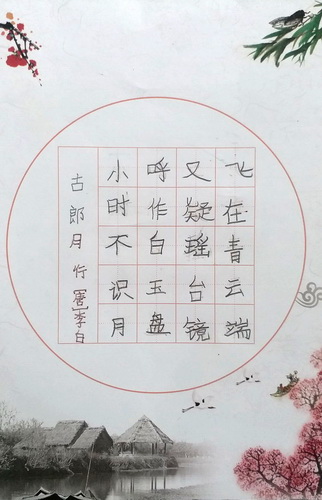 古郎月行[唐]李白
小时不识月
呼作白玉盘
又疑瑶台镜
飞在青云端